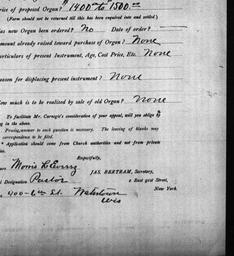 rice of proposed Organ? "1400 to 1500.00
(Form should not be returned till this has been enquired into and settled.)
as new Organ been ordered? No Date of order?
mount already raised toward purchase of Organ? None
articulars of present Instrument, Age, Cost Price, Etc. None
eason for displacing present instrument? None
ow much is to be realized by sale of old Organ? None
To facilitate Mr. Carnegie's consideration of your appeal, will you oblige by
ing in the above.
answer to each question is necessary. The leaving of blanks may
correspondence to be filed.
Application should come from Church authorities and not from private
Respectfully,
Morris
JAS. BERTRAM, Secretary,
l Designation Pastor
2 East 91st Street,
New York.
400-6th St. Watertown
Wis